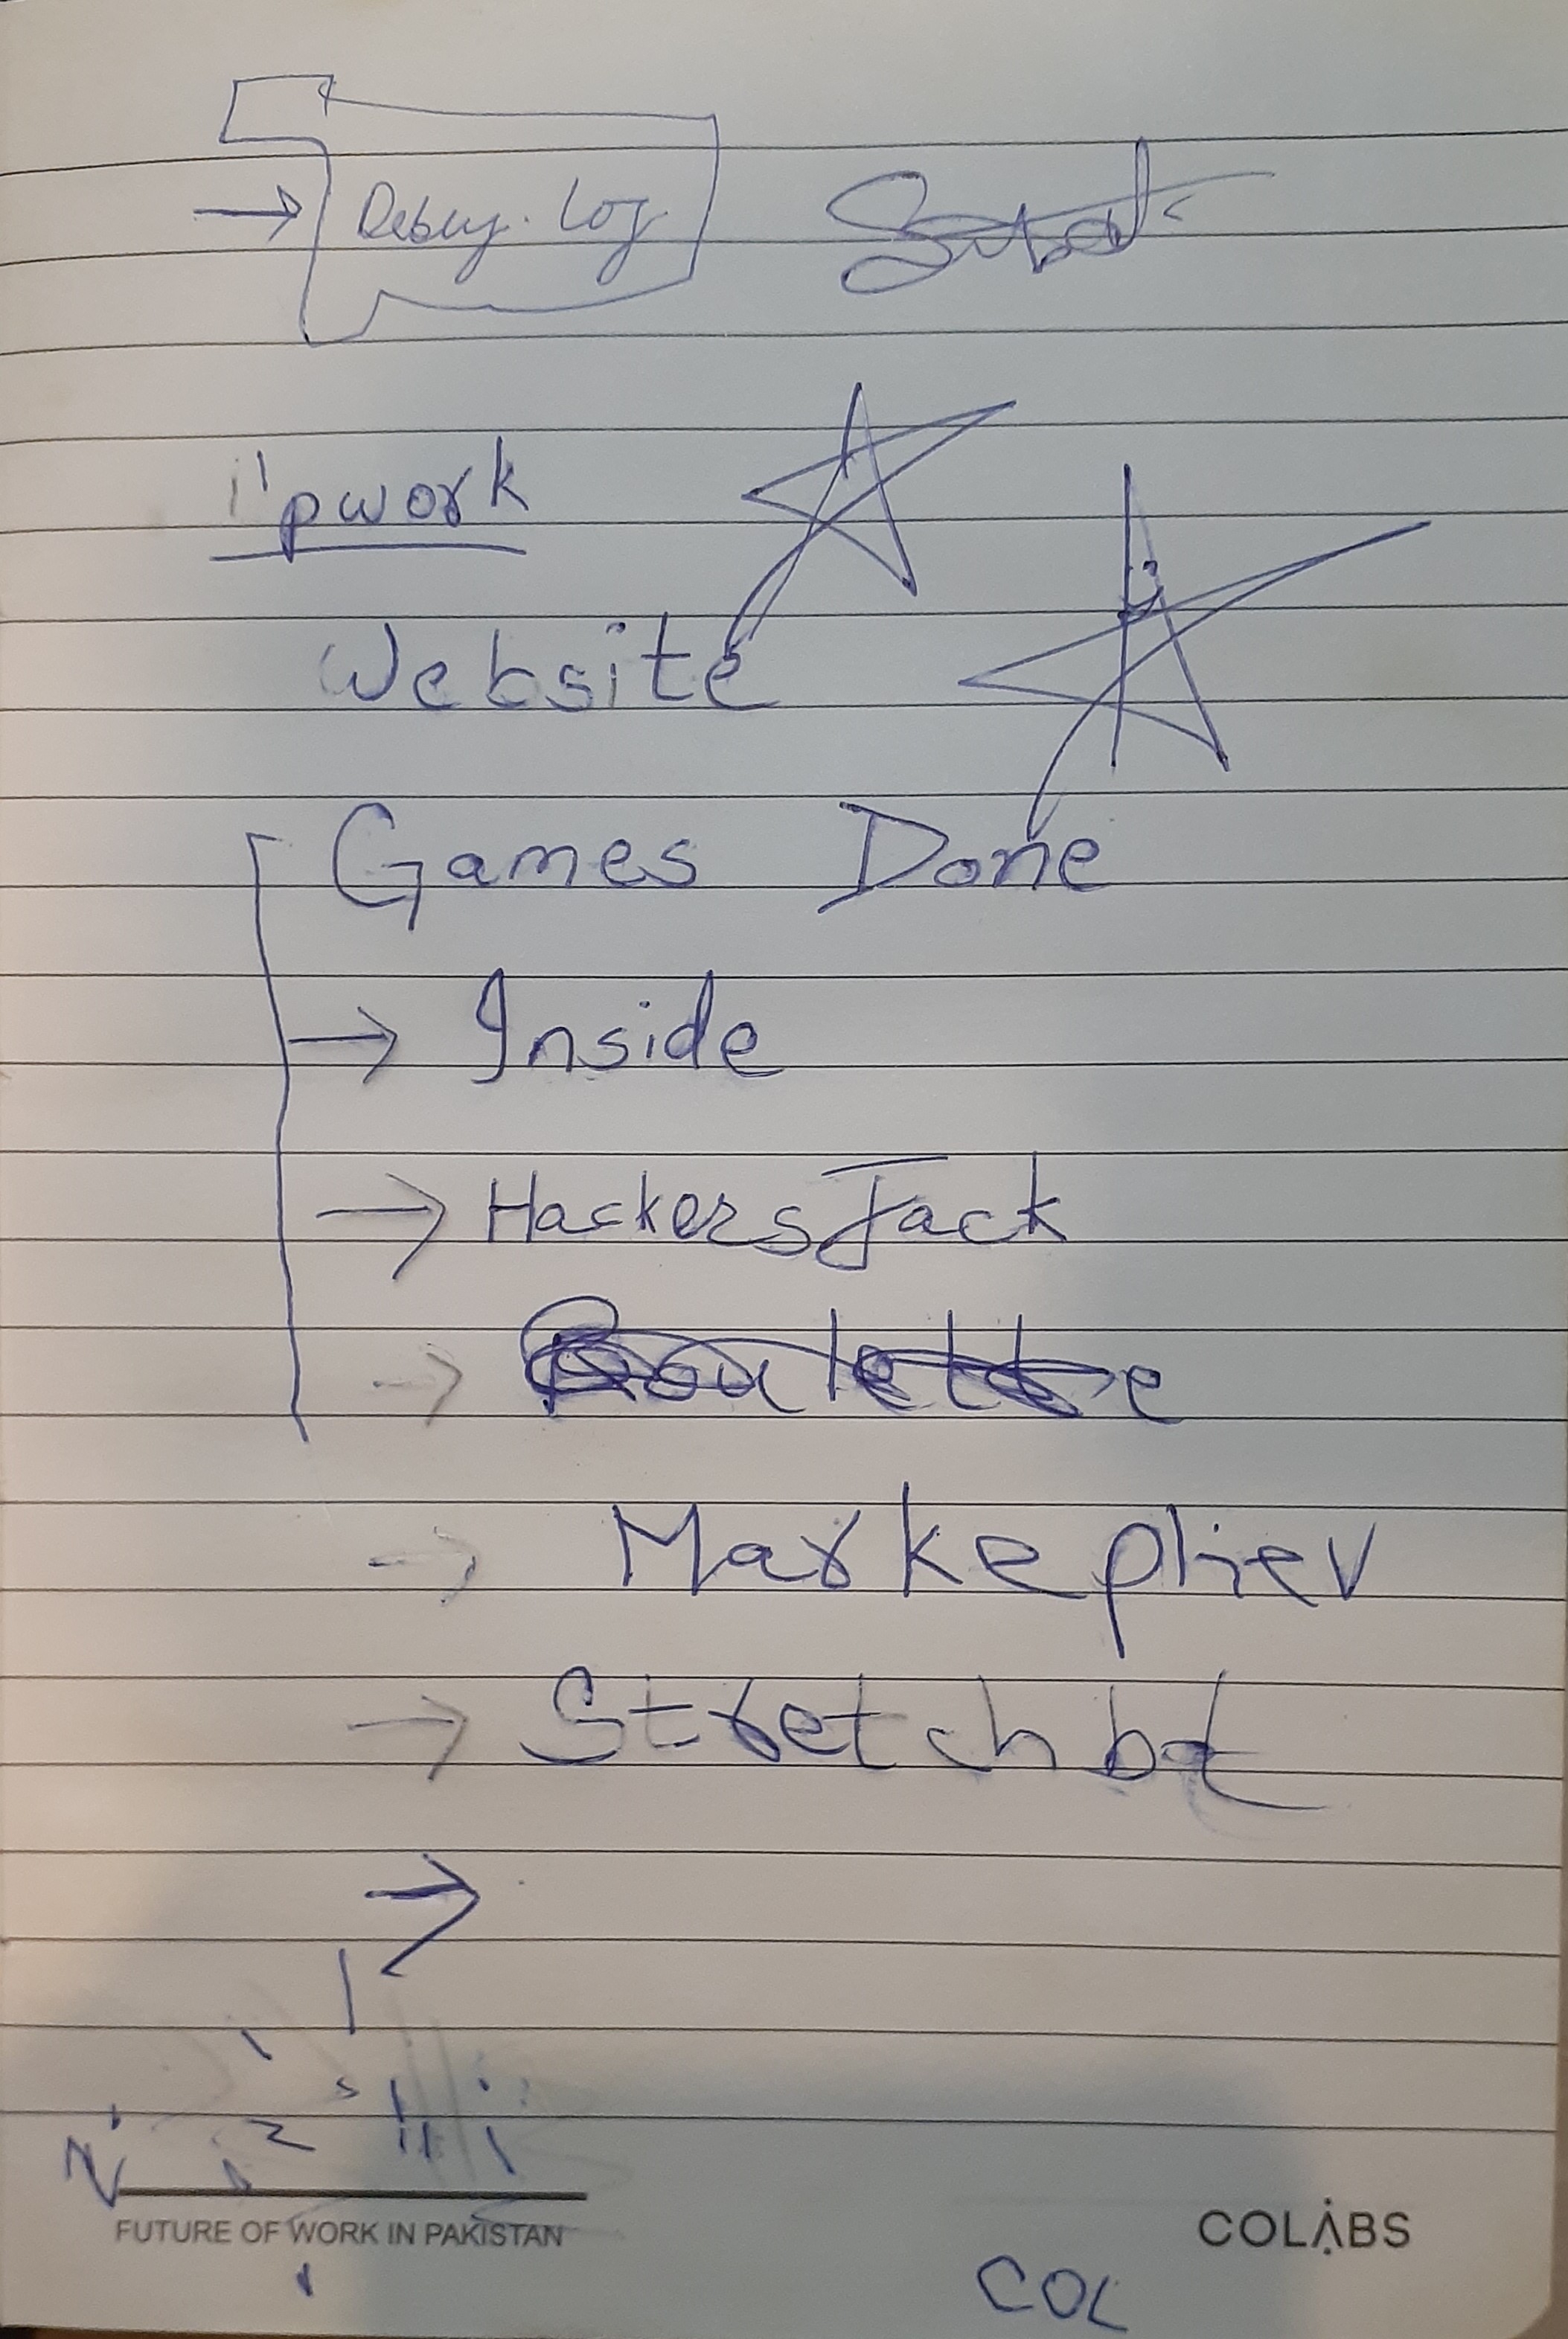 → Debug. Log
Upwork
Website
Games Done
→ Inside
→ Hackers Jack
→ Roulette
→ Markepliev
→ Stretch bot
→
FUTURE OF WORK IN PAKISTAN
COLABS
COL